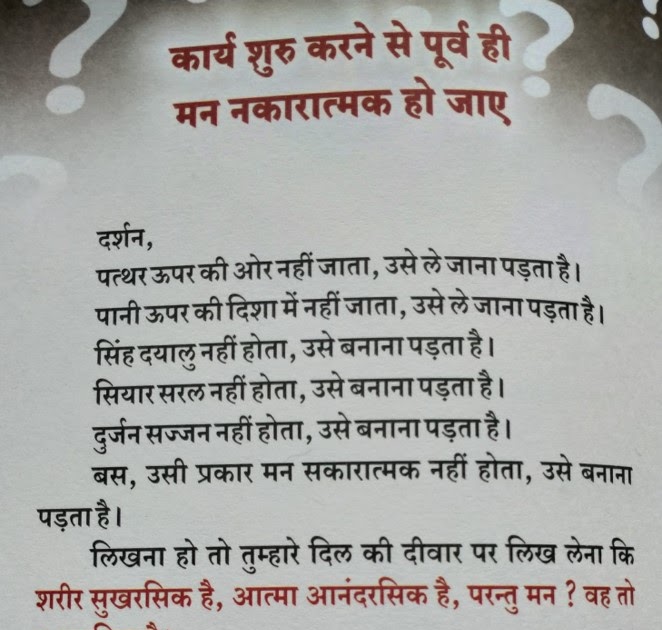 कार्य शुरु करने से पूर्व ही
मन नकारात्मक हो जाए
दर्शन,
पत्थर ऊपर की ओर नहीं जाता, उसे ले जाना पड़ता है।
पानी ऊपर की दिशा में नहीं जाता, उसे ले जाना पड़ता है।
सिंह दयालु नहीं होता, उसे बनाना पड़ता है।
सियार सरल नहीं होता, उसे बनाना पड़ता है।
दुर्जन सज्जन नहीं होता, उसे बनाना पड़ता है।
बस, उसी प्रकार मन सकारात्मक नहीं होता, उसे बनाना
पड़ता है।
लिखना हो तो तुम्हारे दिल की दीवार पर लिख लेना कि
शरीर सुखरसिक है, आत्मा आनंदरसिक है, परन्तु मन ? वह तो